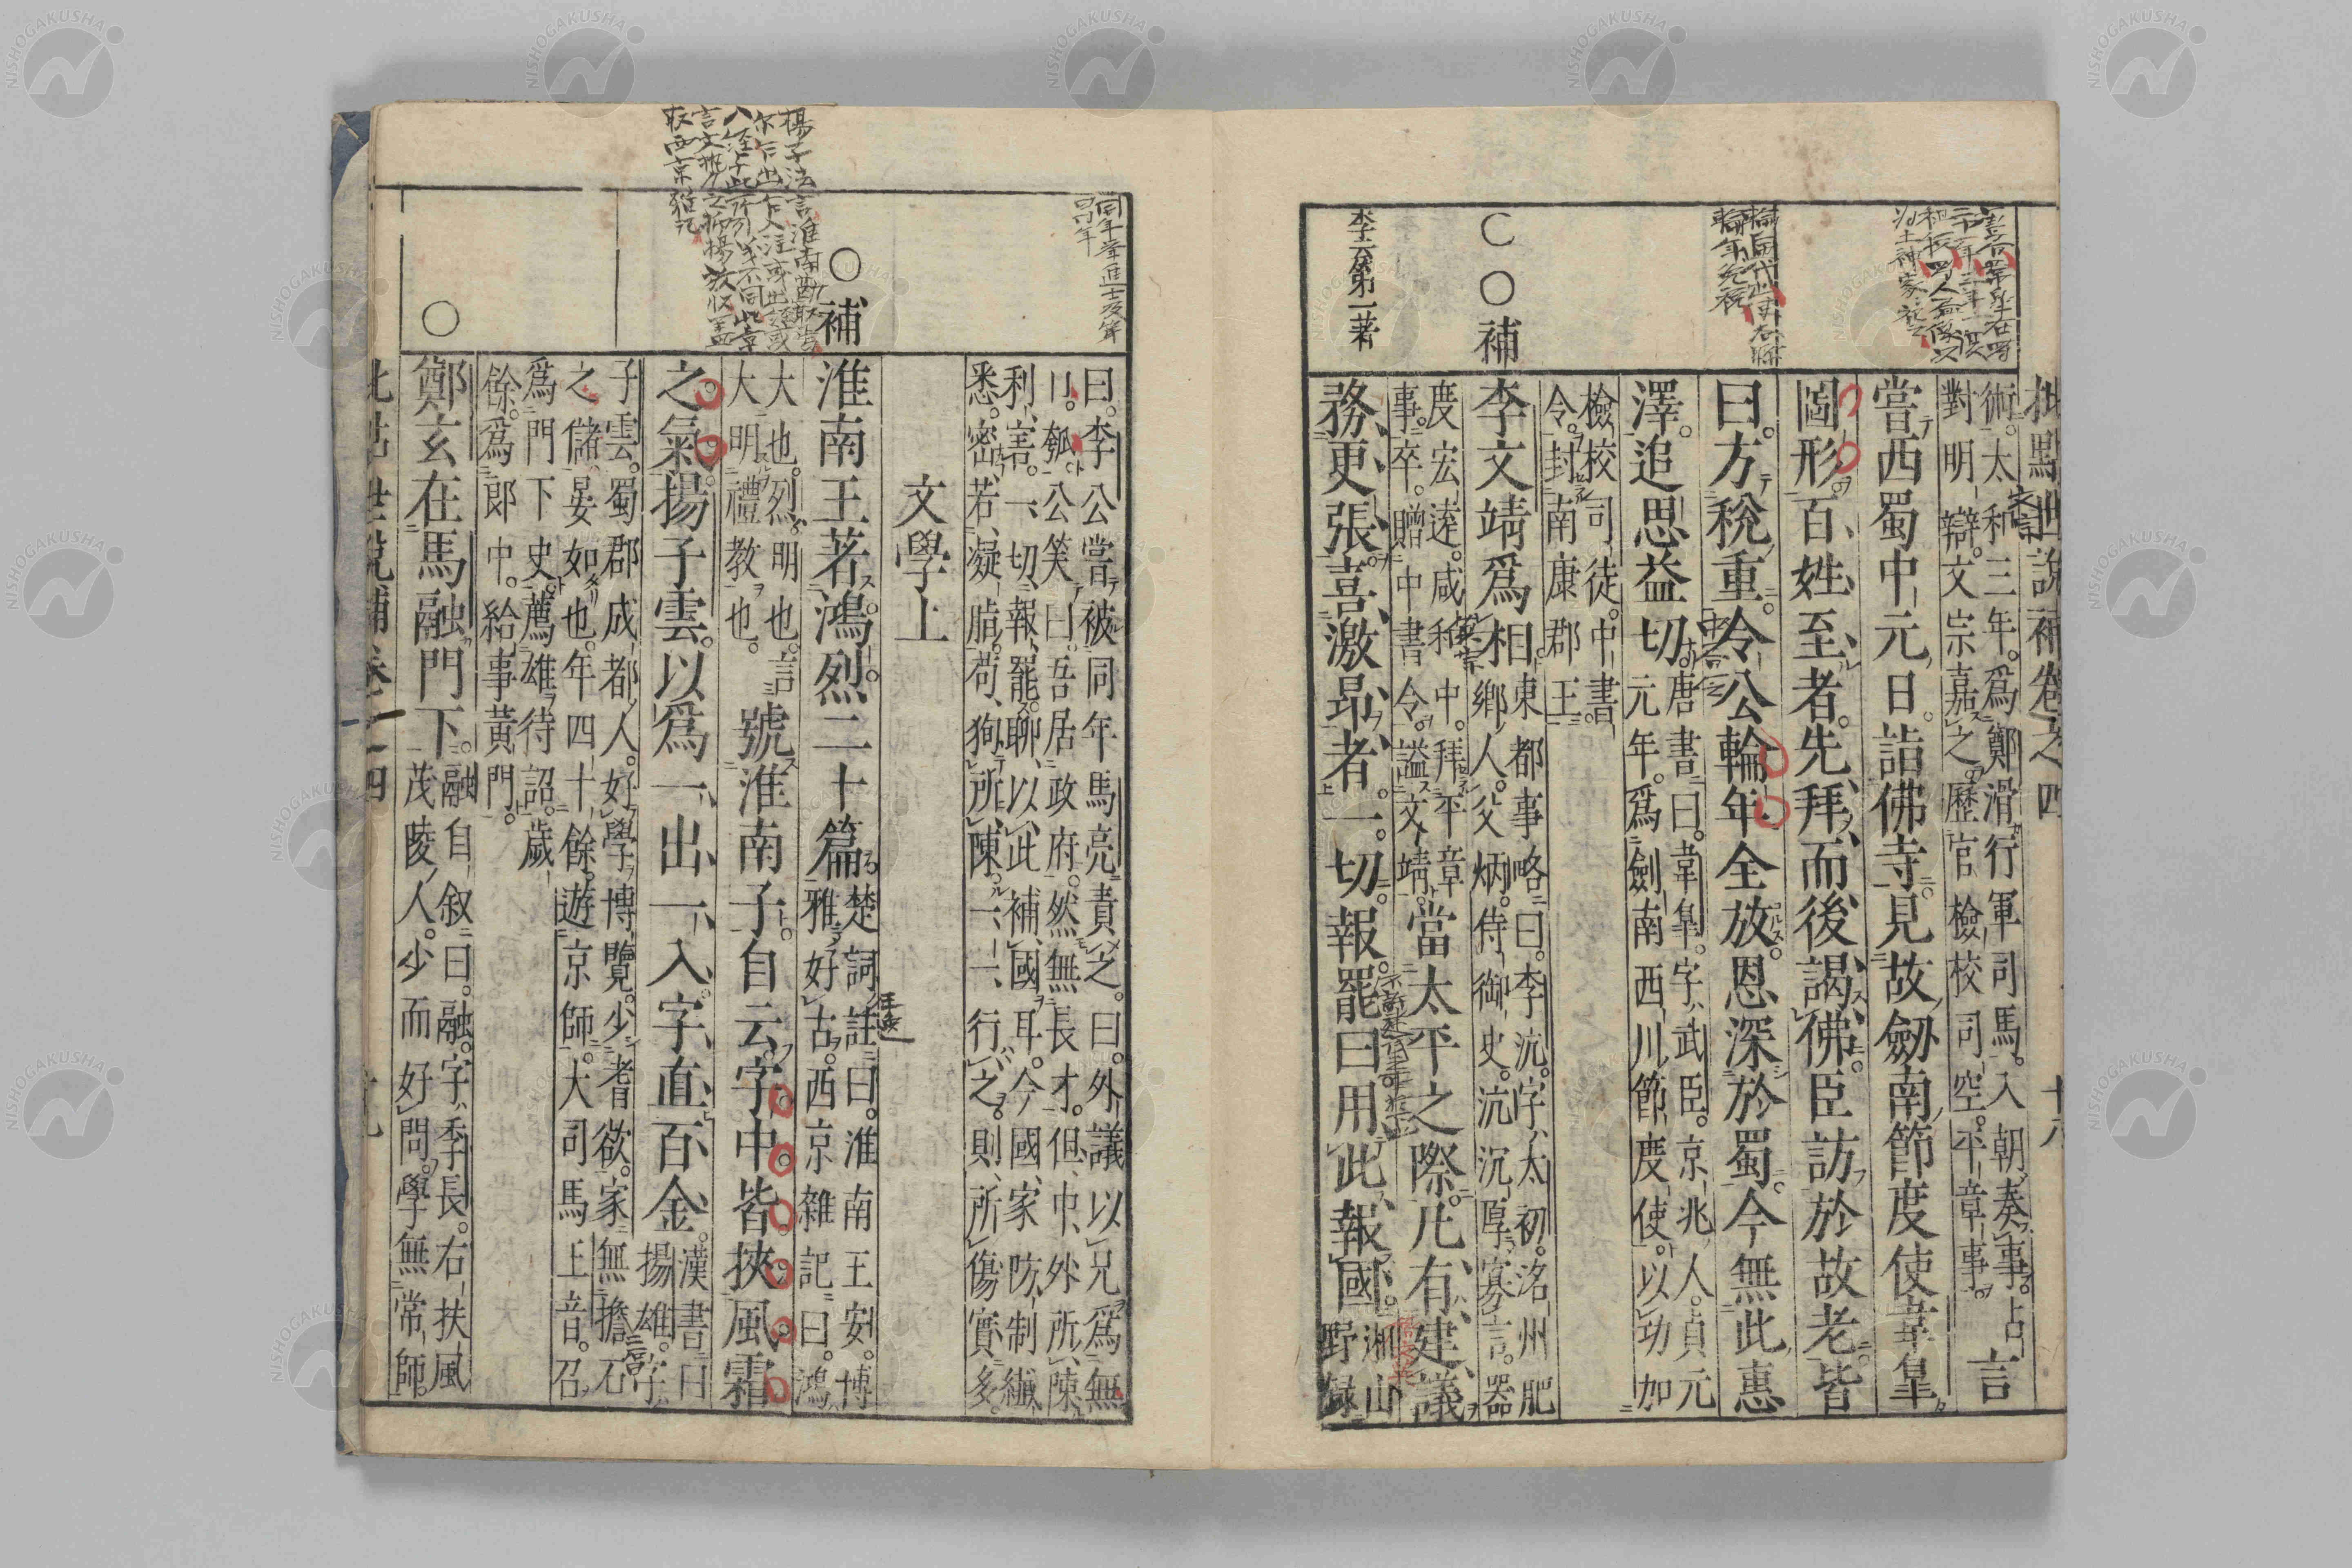 批點世說補卷之四 十八
術。太和三年。爲鄭滑行軍司馬。入朝奏事。占
對明辯。文宗嘉之。歷官檢校司空。平章事。
言
嘗西蜀中元日。詣佛寺。見故劔南節度使韋臯
圖形。百姓至者。先拜而後謁佛。臣訪於故老。皆
曰。方稅重。令公輪年全放。恩深於蜀。今無此惠
澤。追思益切。
唐書曰。韋臯。字武臣。京兆人。貞元
元年。爲劍南西川節度使。以功加
檢校司徒。中書
令。封南康郡王。
補
李文靖爲相。
東都事略曰。李沆。字太初。洛州肥
鄉人。父炳。侍御史。沆沉厚寡言。器
度宏遠。咸和中。拜平章
事。卒。贈中書令。謚文靖。
當太平之際。凡有建議
李云第一著
務更張喜激昂者。一切報罷。曰用此報國。
湘山
野録
曰。李公嘗被同年馬亮責之。曰。外議以兄爲無
口匏。公笑曰。吾居政府。然無長才。但中外所陳
利害。一切報罷。聊以此補國耳。今國家防制纎
悉。密若凝脂。苟狥所陳。一一行之。則所傷實多。
文學上
補
淮南王著鴻烈二十篇
楚詞註曰。淮南王安。博
雅好古。西京雜記曰。鴻
大也。烈。明也。言
大明禮教也。
號淮南子。自云。字中皆挾風霜
之氣。揚子雲。以爲一出一入。字直百金。
漢書曰
揚雄。字
子雲。蜀郡成都人。好學博覽。少耆欲。家無擔石
之儲。晏如也。年四十餘。遊京師。大司馬王音。召
爲門下史。薦雄待詔。歲
餘。爲郎中。給事黃門。
鄭玄在馬融門下。
融自叙曰。融。字季長。右扶風
茂陵人。少而好問。學無常師。